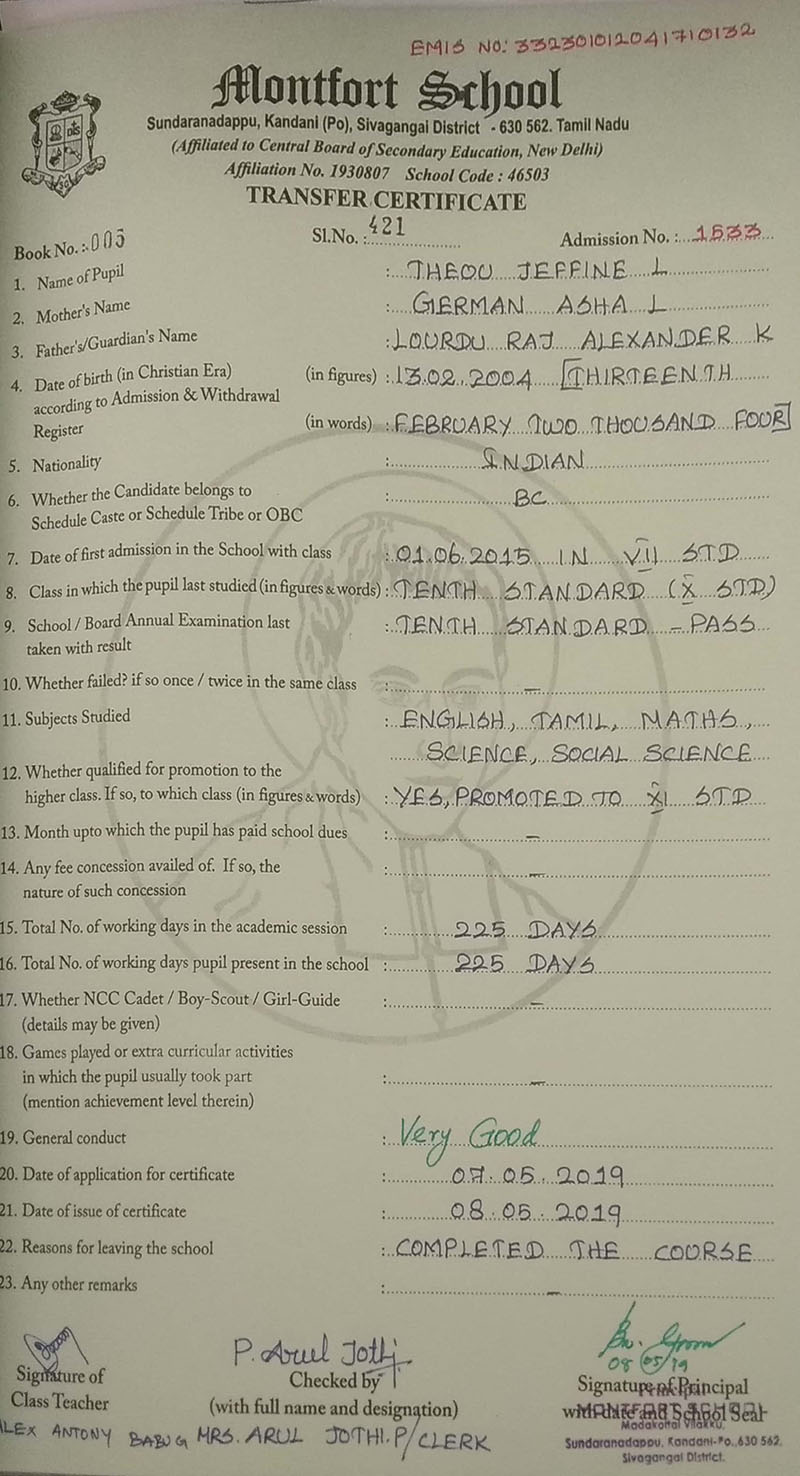 EMIS NO: 33230101204171 0132
Montfort School
Sundaranadappu, Kandani (Po), Sivagangai District - 630 562. Tamil Nadu
(Affiliated to Central Board of Secondary Education, New Delhi)
Affiliation No. 1930807 School Code : 46503
TRANSFER CERTIFICATE
Book No.: 005 Sl.No. : 421 Admission No. : 1533
1. Name of Pupil : THEOU JEFFINE L
2. Mother's Name : GERMAN ASHA L
3. Father's/Guardian's Name : LOURDU RAJ ALEXANDER K
4. Date of birth (in Christian Era) (in figures) : 13.02.2004 [THIRTEENTH
according to Admission & Withdrawal
Register (in words) : FEBRUARY TWO THOUSAND FOUR]
5. Nationality : INDIAN
6. Whether the Candidate belongs to : BC
Schedule Caste or Schedule Tribe or OBC
7. Date of first admission in the School with class : 01.06.2015 IN VII STD
8. Class in which the pupil last studied (in figures & words) : TENTH STANDARD (X STD)
9. School / Board Annual Examination last : TENTH STANDARD - PASS
taken with result
10. Whether failed? if so once / twice in the same class : -
11. Subjects Studied : ENGLISH, TAMIL, MATHS,
SCIENCE, SOCIAL SCIENCE
12. Whether qualified for promotion to the
higher class. If so, to which class (in figures & words) : YES, PROMOTED TO XI STD
13. Month upto which the pupil has paid school dues : -
14. Any fee concession availed of. If so, the : -
nature of such concession
15. Total No. of working days in the academic session : 225 DAYS
16. Total No. of working days pupil present in the school : 225 DAYS
17. Whether NCC Cadet / Boy-Scout / Girl-Guide : -
(details may be given)
18. Games played or extra curricular activities
in which the pupil usually took part : -
(mention achievement level therein)
19. General conduct : Very Good
20. Date of application for certificate : 07.05.2019
21. Date of issue of certificate : 08.05.2019
22. Reasons for leaving the school : COMPLETED THE COURSE
23. Any other remarks : -
P. Arul Jothi
08/05/19
Signature of Checked by Signature of Principal
Class Teacher (with full name and designation) with date and School Seal
ALEX ANTONY BABU G MRS. ARUL JOTHI. P/CLERK
MONTFORT SCHOOL
Madakottai Vilakku,
Sundaranadappu, Kandani-Po., 630 562.
Sivagangai District.